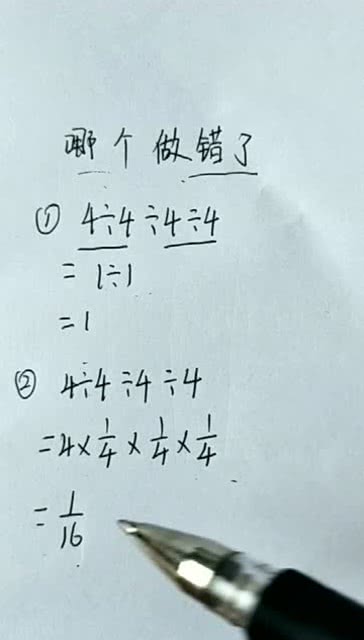 哪个做错了
① 4÷4÷4÷4
= 1÷1
= 1
② 4÷4÷4÷4
= 4 × 1/4 × 1/4 × 1/4
= 1/16